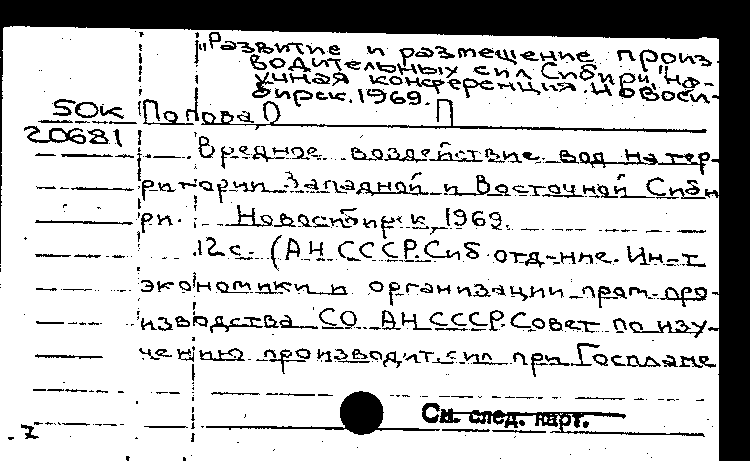 "Развитие и размещение произ-
водительных сил Сибири", на-
учная конференция. Новоси-
бирск. 1969.
50к Попова, О П
20681
Вредное воздействие вод на тер-
ритории Западной и Восточной Сиби
ри. Новосибирск, 1969.
12 с. (АН СССР. Сиб отд-ние. Ин-т
экономики и организации пром. про-
изводства СО АН СССР. Совет по изу-
чению производит. сил при Госплане
См. след. карт.